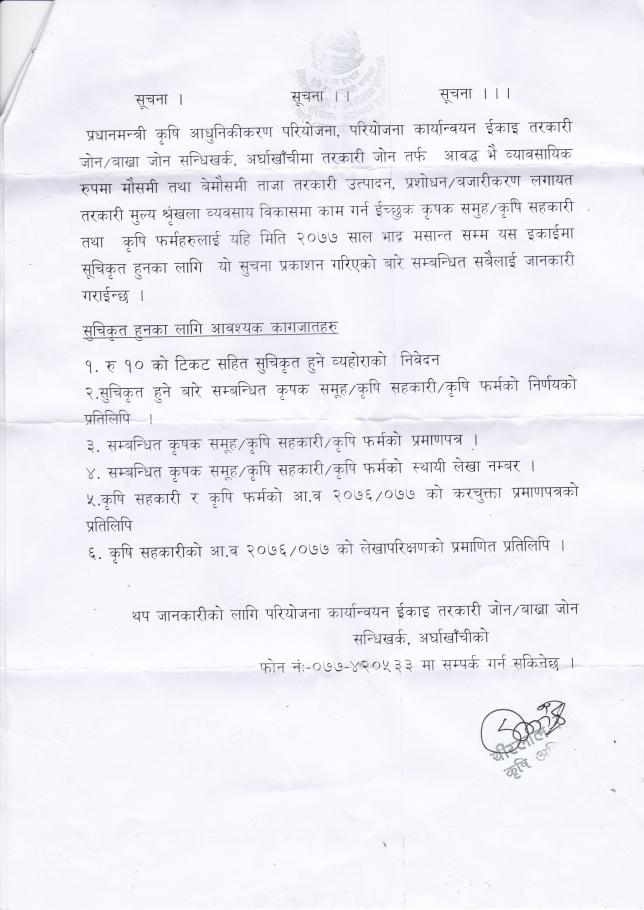 सूचना ।    सूचना ।।    सूचना ।।।
प्रधानमन्त्री कृषि आधुनिकीकरण परियोजना, परियोजना कार्यान्वयन ईकाइ तरकारी
जोन/बाख्रा जोन सन्धिखर्क, अर्घाखाँचीमा तरकारी जोन तर्फ आवद्ध भै व्यावसायिक
रुपमा मौसमी तथा बेमौसमी ताजा तरकारी उत्पादन, प्रशोधन/बजारीकरण लगायत
तरकारी मुल्य श्रृंखला व्यवसाय विकासमा काम गर्न ईच्छुक कृषक समुह/कृषि सहकारी
तथा कृषि फर्महरुलाई यहि मिति २०७७ साल भाद्र मसान्त सम्म यस इकाईमा
सूचिकृत हुनका लागि यो सुचना प्रकाशन गरिएको बारे सम्बन्धित सबैलाई जानकारी
गराईन्छ ।
सुचिकृत हुनका लागि आवश्यक कागजातहरु
१. रु १० को टिकट सहित सुचिकृत हुने व्यहोराको निवेदन
२.सुचिकृत हुने बारे सम्बन्धित कृषक समूह/कृषि सहकारी/कृषि फर्मको निर्णयको
प्रतिलिपि ।
३. सम्बन्धित कृषक समूह/कृषि सहकारी/कृषि फर्मको प्रमाणपत्र ।
४. सम्बन्धित कृषक समूह/कृषि सहकारी/कृषि फर्मको स्थायी लेखा नम्बर ।
५.कृषि सहकारी र कृषि फर्मको आ.व २०७६/०७७ को करचुक्ता प्रमाणपत्रको
प्रतिलिपि
६. कृषि सहकारीको आ.व २०७६/०७७ को लेखापरिक्षणको प्रमाणित प्रतिलिपि ।
थप जानकारीको लागि परियोजना कार्यान्वयन ईकाइ तरकारी जोन/बाख्रा जोन
सन्धिखर्क, अर्घाखाँचीको
फोन नं:-०७७-४२०५३३ मा सम्पर्क गर्न सकिनेछ ।
कृषि